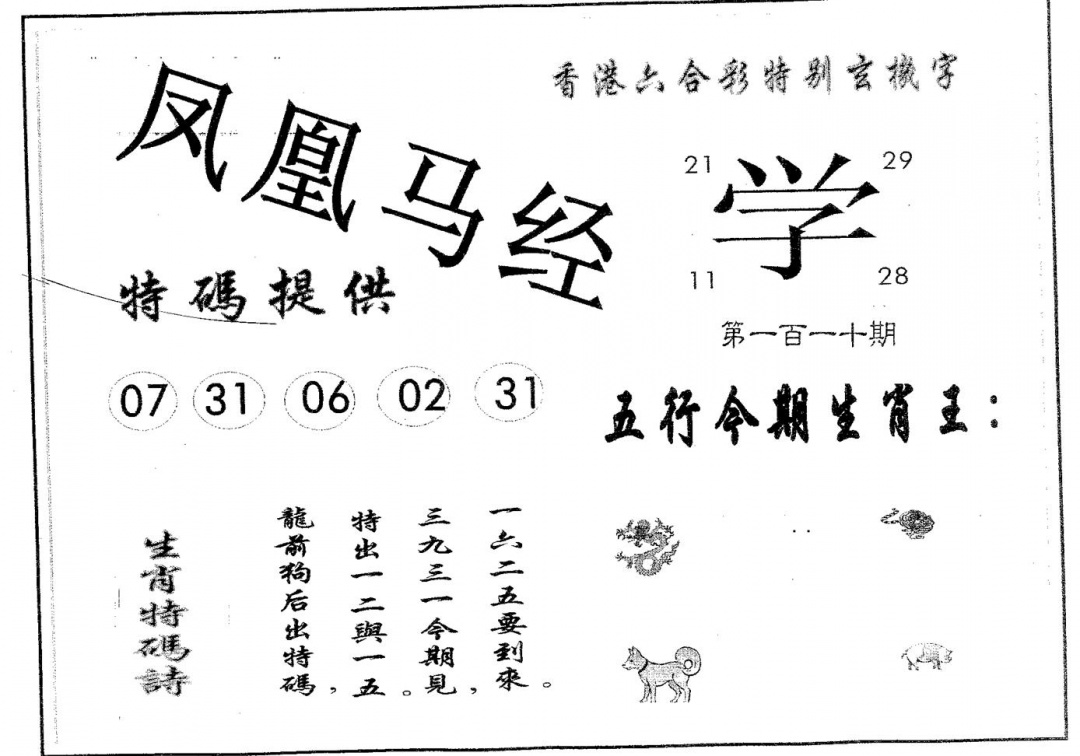 凤凰马经
香港六合彩特别玄機字
21
29
学
11
28
特碼提供
第一百一十期
07 31 06 02 31
五行今期生肖王：
生肖特碼詩
龍前狗后出特碼，
特出一二與一五。
三九三一今期見，
一六二五要到來。